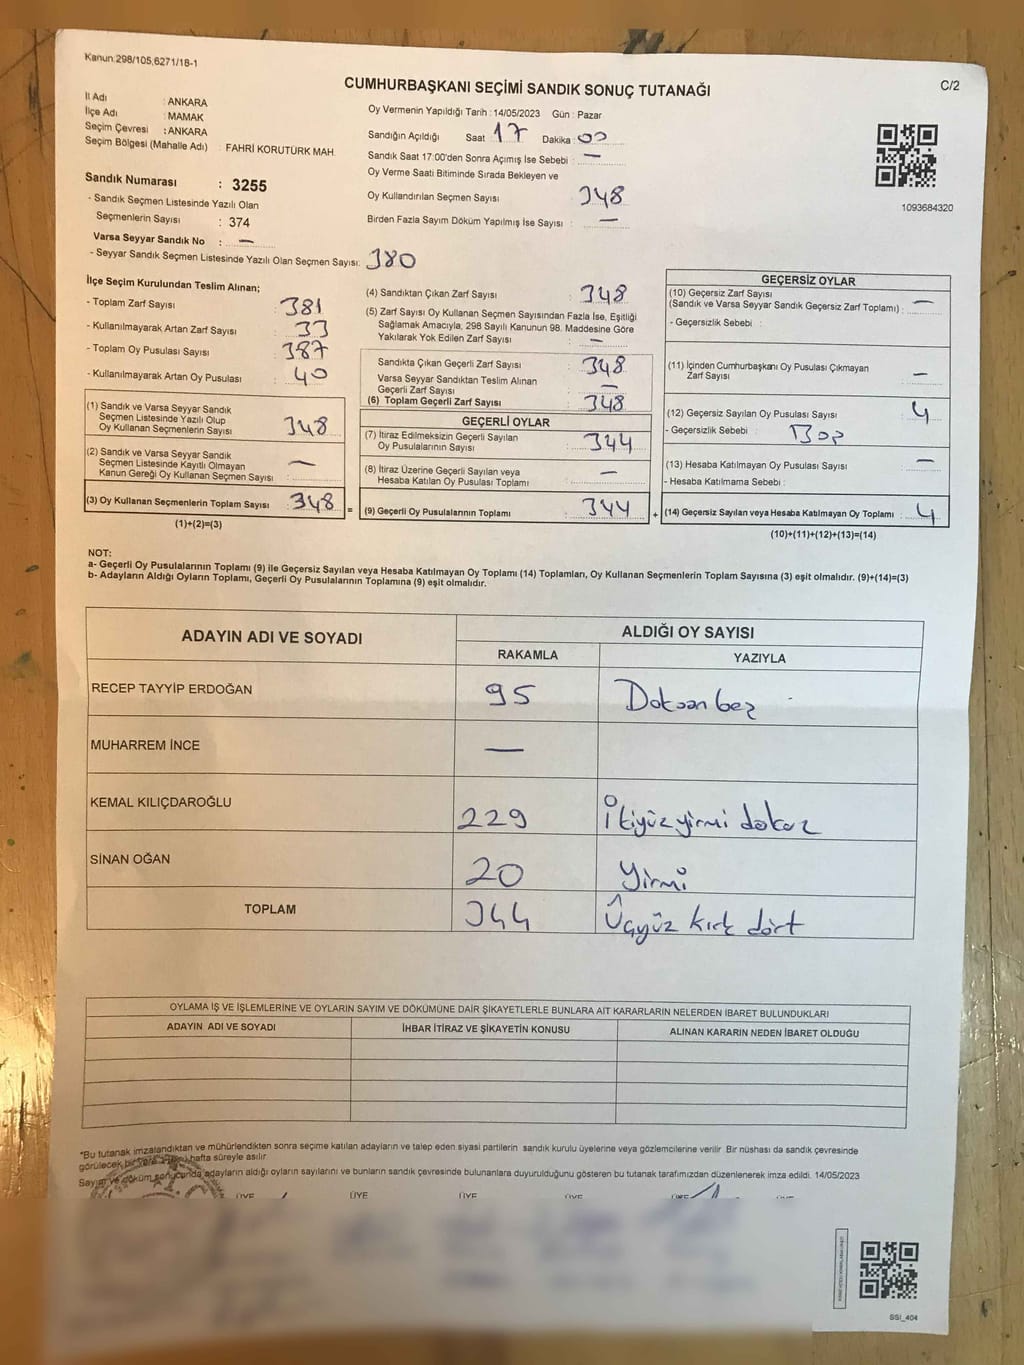 Kanun:298/105,6271/18-1
C/2
CUMHURBAŞKANI SEÇİMİ SANDIK SONUÇ TUTANAĞI
İl Adı : ANKARA
İlçe Adı : MAMAK
Seçim Çevresi : ANKARA
Seçim Bölgesi (Mahalle Adı) : FAHRİ KORUTÜRK MAH.
Sandık Numarası : 3255
- Sandık Seçmen Listesinde Yazılı Olan
Seçmenlerin Sayısı : 374
Varsa Seyyar Sandık No : —
- Seyyar Sandık Seçmen Listesinde Yazılı Olan Seçmen Sayısı: 380
Oy Vermenin Yapıldığı Tarih : 14/05/2023 Gün : Pazar
Sandığın Açıldığı Saat 17 Dakika : 00
Sandık Saat 17:00'den Sonra Açımış İse Sebebi : —
Oy Verme Saati Bitiminde Sırada Bekleyen ve
Oy Kullandırılan Seçmen Sayısı : 348
Birden Fazla Sayım Döküm Yapılmış İse Sayısı : —
1093684320
İlçe Seçim Kurulundan Teslim Alınan;
- Toplam Zarf Sayısı : 381
- Kullanılmayarak Artan Zarf Sayısı : 33
- Toplam Oy Pusulası Sayısı : 387
- Kullanılmayarak Artan Oy Pusulası : 40
(1) Sandık ve Varsa Seyyar Sandık
Seçmen Listesinde Yazılı Olup
Oy Kullanan Seçmenlerin Sayısı : 348
(2) Sandık ve Varsa Seyyar Sandık
Seçmen Listesinde Kayıtlı Olmayan
Kanun Gereği Oy Kullanan Seçmen Sayısı : —
(3) Oy Kullanan Seçmenlerin Toplam Sayısı : 348 =
(1)+(2)=(3)
(4) Sandıktan Çıkan Zarf Sayısı : 348
(5) Zarf Sayısı Oy Kullanan Seçmen Sayısından Fazla İse, Eşitliği
Sağlamak Amacıyla, 298 Sayılı Kanunun 98. Maddesine Göre
Yakılarak Yok Edilen Zarf Sayısı : —
Sandıkta Çıkan Geçerli Zarf Sayısı : 348
Varsa Seyyar Sandıktan Teslim Alınan
Geçerli Zarf Sayısı : —
(6) Toplam Geçerli Zarf Sayısı : 348
GEÇERLİ OYLAR
(7) İtiraz Edilmeksizin Geçerli Sayılan
Oy Pusulalarının Sayısı : 344
(8) İtiraz Üzerine Geçerli Sayılan veya
Hesaba Katılan Oy Pusulası Toplamı : —
(9) Geçerli Oy Pusulalarının Toplamı : 344 +
GEÇERSİZ OYLAR
(10) Geçersiz Zarf Sayısı
(Sandık ve Varsa Seyyar Sandık Geçersiz Zarf Toplamı) : —
- Geçersizlik Sebebi :
(11) İçinden Cumhurbaşkanı Oy Pusulası Çıkmayan
Zarf Sayısı : —
(12) Geçersiz Sayılan Oy Pusulası Sayısı : 4
- Geçersizlik Sebebi :
(13) Hesaba Katılmayan Oy Pusulası Sayısı : —
- Hesaba Katılmama Sebebi :
(14) Geçersiz Sayılan veya Hesaba Katılmayan Oy Toplamı : 4
(10)+(11)+(12)+(13)=(14)
NOT:
a- Geçerli Oy Pusulalarının Toplamı (9) ile Geçersiz Sayılan veya Hesaba Katılmayan Oy Toplamı (14) Toplamları, Oy Kullanan Seçmenlerin Toplam Sayısına (3) eşit olmalıdır. (9)+(14)=(3)
b- Adayların Aldığı Oyların Toplamı, Geçerli Oy Pusulalarının Toplamına (9) eşit olmalıdır.
ADAYIN ADI VE SOYADI ALDIĞI OY SAYISI
RAKAMLA YAZIYLA
RECEP TAYYİP ERDOĞAN 95 Doksan beş
MUHARREM İNCE —
KEMAL KILIÇDAROĞLU 229 İkiyüz yirmi dokuz
SİNAN OĞAN 20 Yirmi
TOPLAM 344 Üçyüz kırk dört
OYLAMA İŞ VE İŞLEMLERİNE VE OYLARIN SAYIM VE DÖKÜMÜNE DAİR ŞİKAYETLERLE BUNLARA AİT KARARLARIN NELERDEN İBARET BULUNDUKLARI
ADAYIN ADI VE SOYADI İHBAR İTİRAZ VE ŞİKAYETİN KONUSU ALINAN KARARIN NEDEN İBARET OLDUĞU
*Bu tutanak imzalandıktan ve mühürlendikten sonra seçime katılan adayların ve talep eden siyasi partilerin sandık kurulu üyelerine veya gözlemcilerine verilir Bir nüshası da sandık çevresinde
görülecek bir yere hafta süreyle asılır.
Sayım ve döküm sonucunda adayların aldığı oyların sayılarını ve bunların sandık çevresinde bulunanlara duyurulduğunu gösteren bu tutanak tarafımızdan düzenlenerek imza edildi. 14/05/2023
ÜYE ÜYE ÜYE ÜYE ÜYE
SSI_404